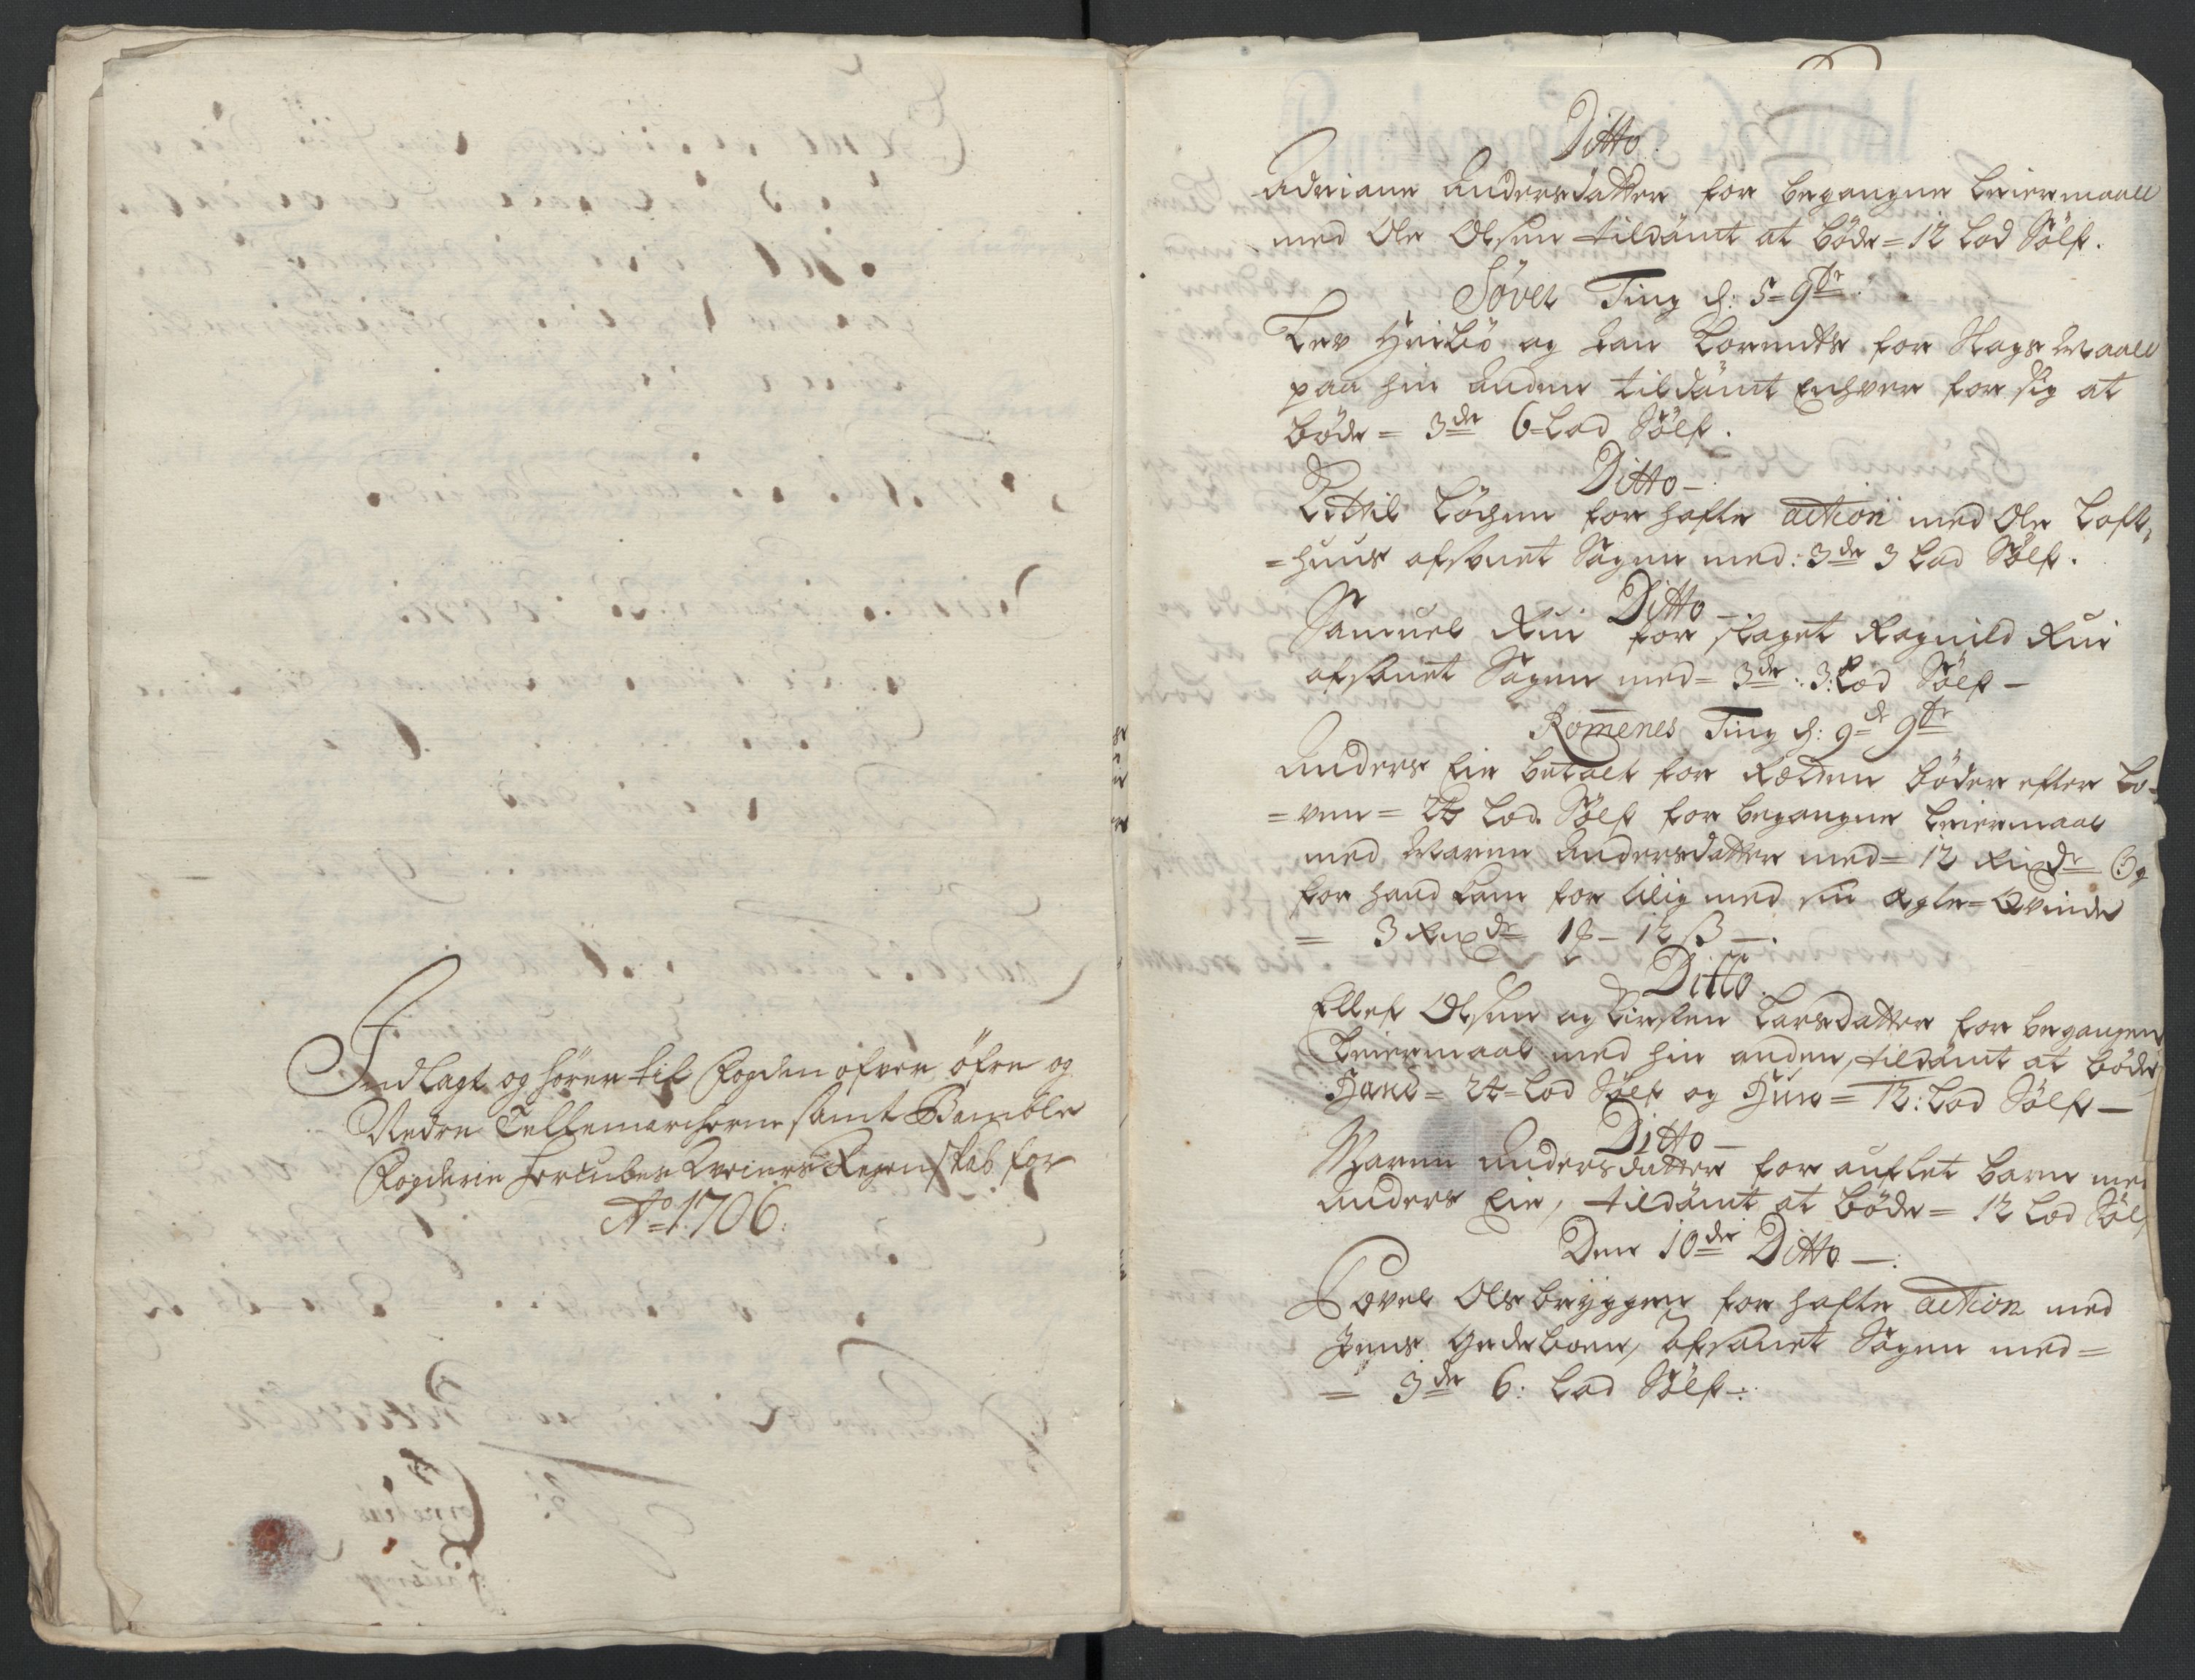 Indlagt og hører til Fogden ofver øfre og
Nedre Tellemarcherne samt Bamble
Fogderie Hercules Weiners Regenskab for
Ao 1706.
Ditto
Adriane Andersdatter for begangne Leiermaall
med Ole Olsen tildømt at bøde = 12 Lod Sølf.
Søvet Ting d: 5 = 9br
Lev Hvibø og Jan Lorendts for Slags Maall
paa hin Anden tildømt Enhver for sig at
bøde = 3de 6 = Lod Sølf.
Ditto
Kittil Løchen for hafte action med Ole Loft,
= huus afsonet Sagen med: 3de 3 Lod Sølf.
Ditto
Samuel Rui for slaget Ragnild Rui
afsonet Sagen med = 3de: 3: Lod Sølf
Romenes Ting d: 9de 9br
Anders Eie betalt for Rætten bøder efter Lo-
= ven = 24 Lod Sølf for begangne Leiermaal
med Maren Andersdatter med = 12 Rixdr Og
for hand kom for tilig med sin Ægte = Qvinde
= 3 Rixdr 1 - 12 ß
Ditto
Ellef Olsen og Kirsten Larsdatter for begangen
Leiermaal med hin anden, tildømt at bøde
Hand = 24 = Lod Sølf og Hun = 12: Lod Sølf
Ditto
Maren Andersdatter for auflet barn med
Anders Eie, tildømt at bøde = 12 Lod Søl
Den 10de Ditto
Povel Olsbryggen for hafte action med
Jens Gedeboen, Afsonet Sagen med =
= 3de 6: Lod Sølf